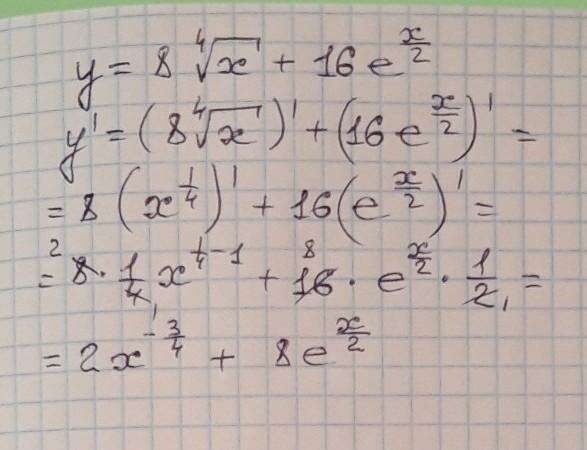 y = 8 ∜x + 16 e^(x/2)
y' = (8 ∜x)' + (16 e^(x/2))' =
= 8 (x^(1/4))' + 16 (e^(x/2))' =
= 8̸² · 1/4̸₁ x^(1/4 - 1) + 1̸6̸⁸ · e^(x/2) · 1/2̸₁ =
= 2 x^(-3/4) + 8 e^(x/2)